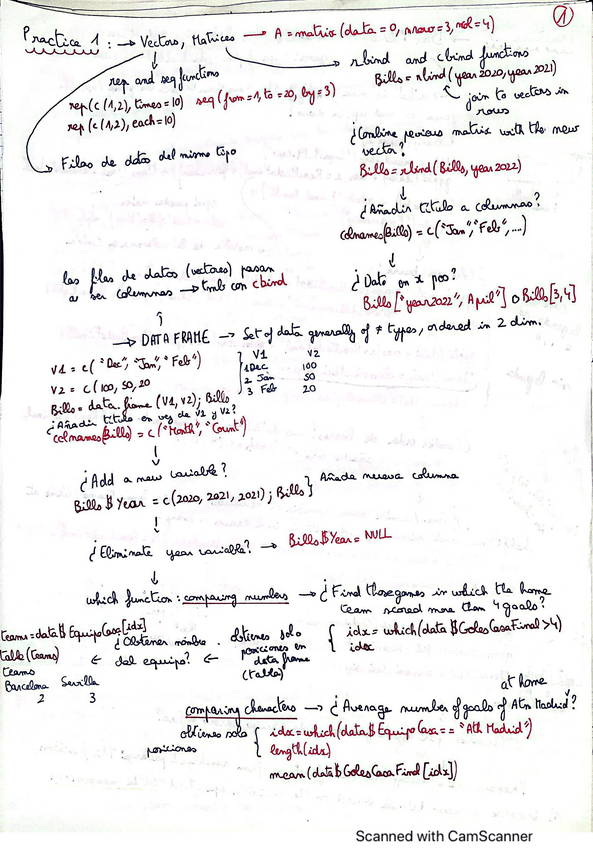 1
Practice 1: → Vectors, Matrices → A = matrix (data = 0, nrow = 3, ncol = 4)
rep and seq functions
rep (c (1,2), times = 10) seq (from = 1, to = 20, by = 3)
rep (c (1,2), each = 10)
Filas de datos del mismo tipo
rbind and cbind functions
Bills = rbind (year2020, year2021)
join to vectors in
rows
¿Combine pevious matrix with the new
vector?
Bills = rbind (Bills, year2022)
¿Añadir título a columnas?
colnames(Bills) = c("Jan", "Feb", ...)
¿Dato en x pos?
Bills ["year2022", April"] o Bills [3,4]
las filas de datos (vectores) pasan
a ser columnas → tmb con cbind
→ DATA FRAME → Set of data generally of ≠ types, ordered in 2 dim.
V1 = c ("Dec", "Jan", "Feb")
V2 = c (100, 50, 20
Bills = data.frame (V1, V2); Bills
V1 V2
1 Dec 100
2 Jan 50
3 Feb 20
¿Añadir título en vez de V1 y V2?
colnames(Bills) = c ("Month", "Count")
¿Add a new variable?
Bills $ Year = c (2020, 2021, 2021); Bills } Añade nueva columna
¿Eliminate year variable? → Bills$Year = NULL
which function: comparing numbers → ¿Find those games in which the home
team scored more than 4 goals?
idx = which (data $GolesCasaFinal >4)
idx
obtienes solo
posiciones en
data frame
(tabla)
¿Obtener nombre
del equipo? ←
teams = data$ EquipoCasa[idx]
table (teams) ←
teams
Barcelona Sevilla
2 3
comparing characters → ¿Average number of goals of Atm Madrid ?
at home
obtienes solo
posiciones
idx = which (data$ EquipoCasa == "Ath Madrid")
length (idx)
mean (data$GolesCasaFinal [idx])
Scanned with CamScanner